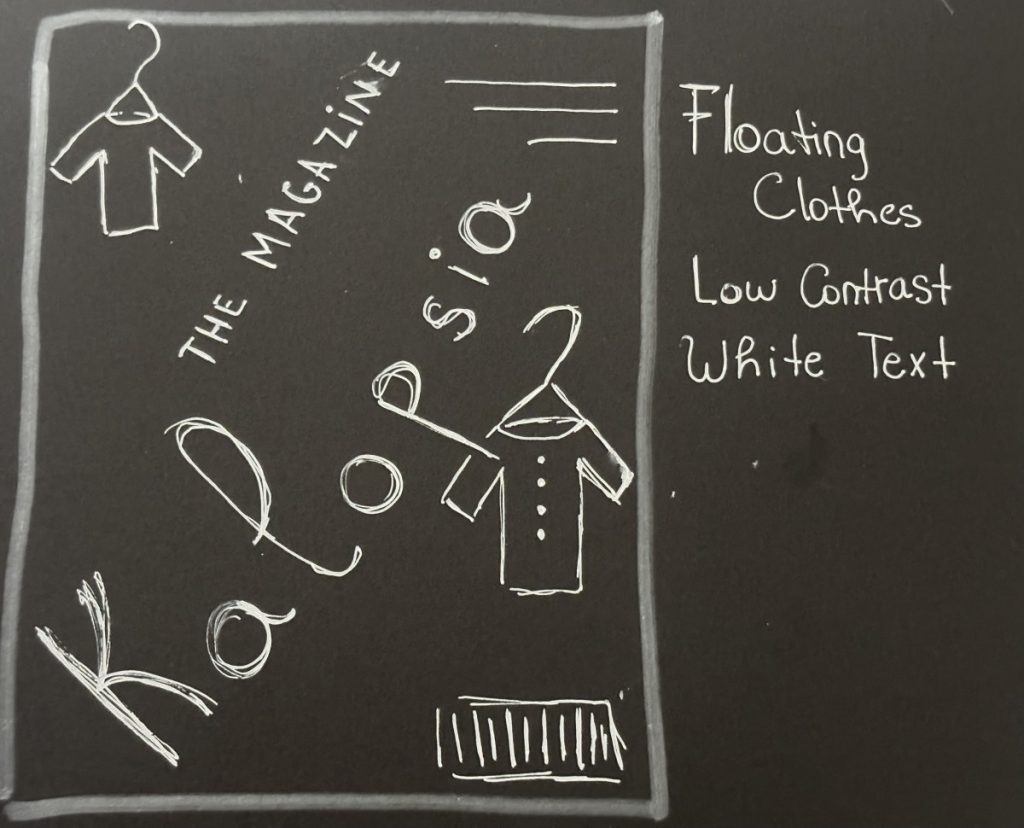 THE MAGAZINE
Kalopsia
Floating
Clothes
Low Contrast
White Text